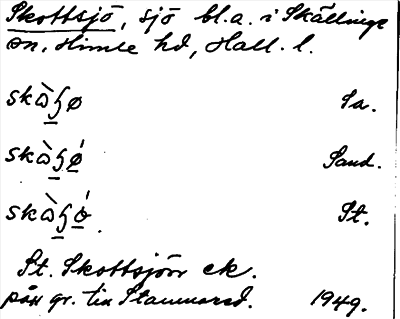 Skottsjö, sjö bl.a. i Skällinge
sn, Himle hd, Hall. l.
skɔ̀ʂø Sa.
skɔ̀ʂǿ Sand.
skɔ̀ʂǿ. St.
St. Skottsjön ek.
på gr. till Stamnared. 1949.